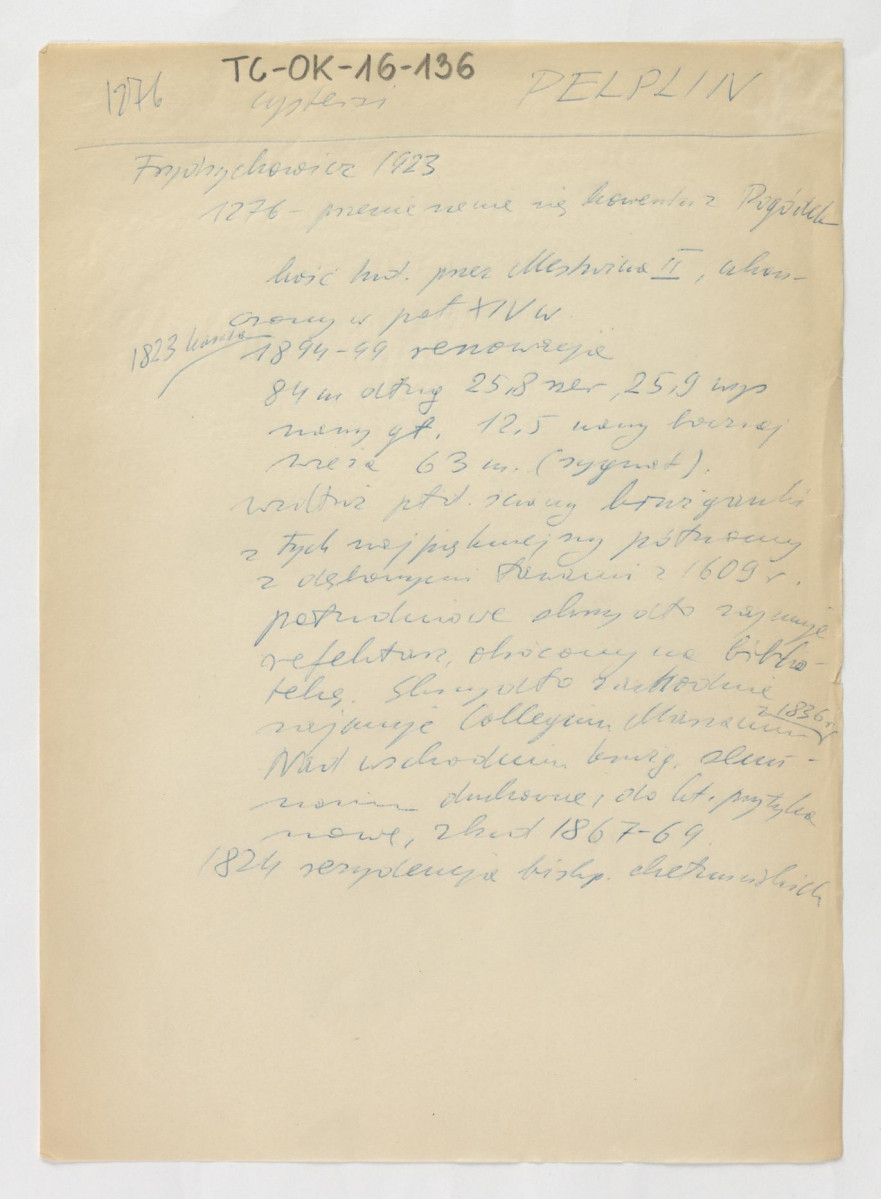 TC-OK-16-136
1276 cystersi PELPLIN
Frydrychowicz 1923
1276 - przeniesienie się konwentu z Pogódek
kość bud. przez Mestwina II, ukoń-
czony w poł. XIV w.
1823 kasata
1894-99 renowacja
84 m dług 25,8 szer, 25,9 wys
nawy gł. 12,5 nawy bocznej
wieża 63 m. (sygnat).
wzdłuż płd. ściany krużganki
z tych najpiękniejszy północny
z dębowymi ławami z 1609 r.
południowe skrzydło zajmuje
refektarz, obrócony na biblio-
tekę. Skrzydło zachodnie
z 1836 r.
zajmuje Collegium Marianum
Nad wschodnim krużg. semi-
narium duchowne, do kt. przytyka
nowe, zbud 1867-69.
1824 rezydencja biskp. chełmińskich